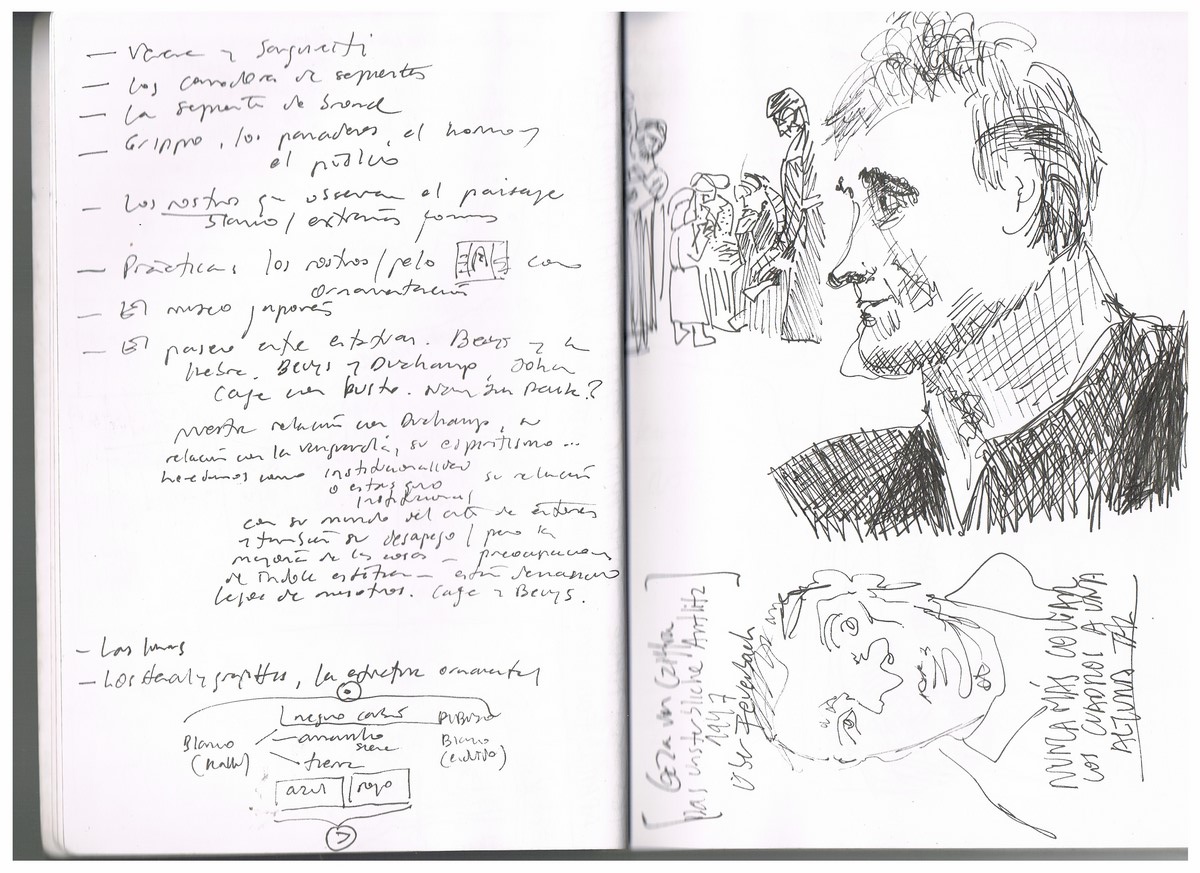 —
— Los cazadores de serpientes
— La serpiente de bronce
— Grippo, los panaderos, el horno y
el público
— Los rostros qu observan el paisaje
blanco / extrañas formas
— Práctica: los rostros / pelo como
ornamentación
— El museo japonés
— El paseo entre estatuas. Beuys y la
liebre. Beuys y Duchamp, John
Cage con busto. Nam Jun Paik?
nuestra relación con Duchamp, su
relación con la vanguardia, su espiritismo ...
heredamos como institucionalidad
o estas
institucional su relación
con su mundo del arte de entonces
y también su desapego / pero la
mayoría de las cosas — preocupaciones
de índole estética — están demasiado
lejos de nosotros. Cage y Beuys.
— Las lunas
— Los stencil y graffitis, la estructura ornamental
negro carbón
DIBUJO
Blanco
(nada)
amarillo
siena
Blanco
(eludido)
tierra
azul rojo
[Geza von Cziffra
Das unsterbliche Antlitz]
1947
Über Feuerbach
NUNCA MÁS COLGAR
LOS CUADROS A UNA
ALTURA TAL